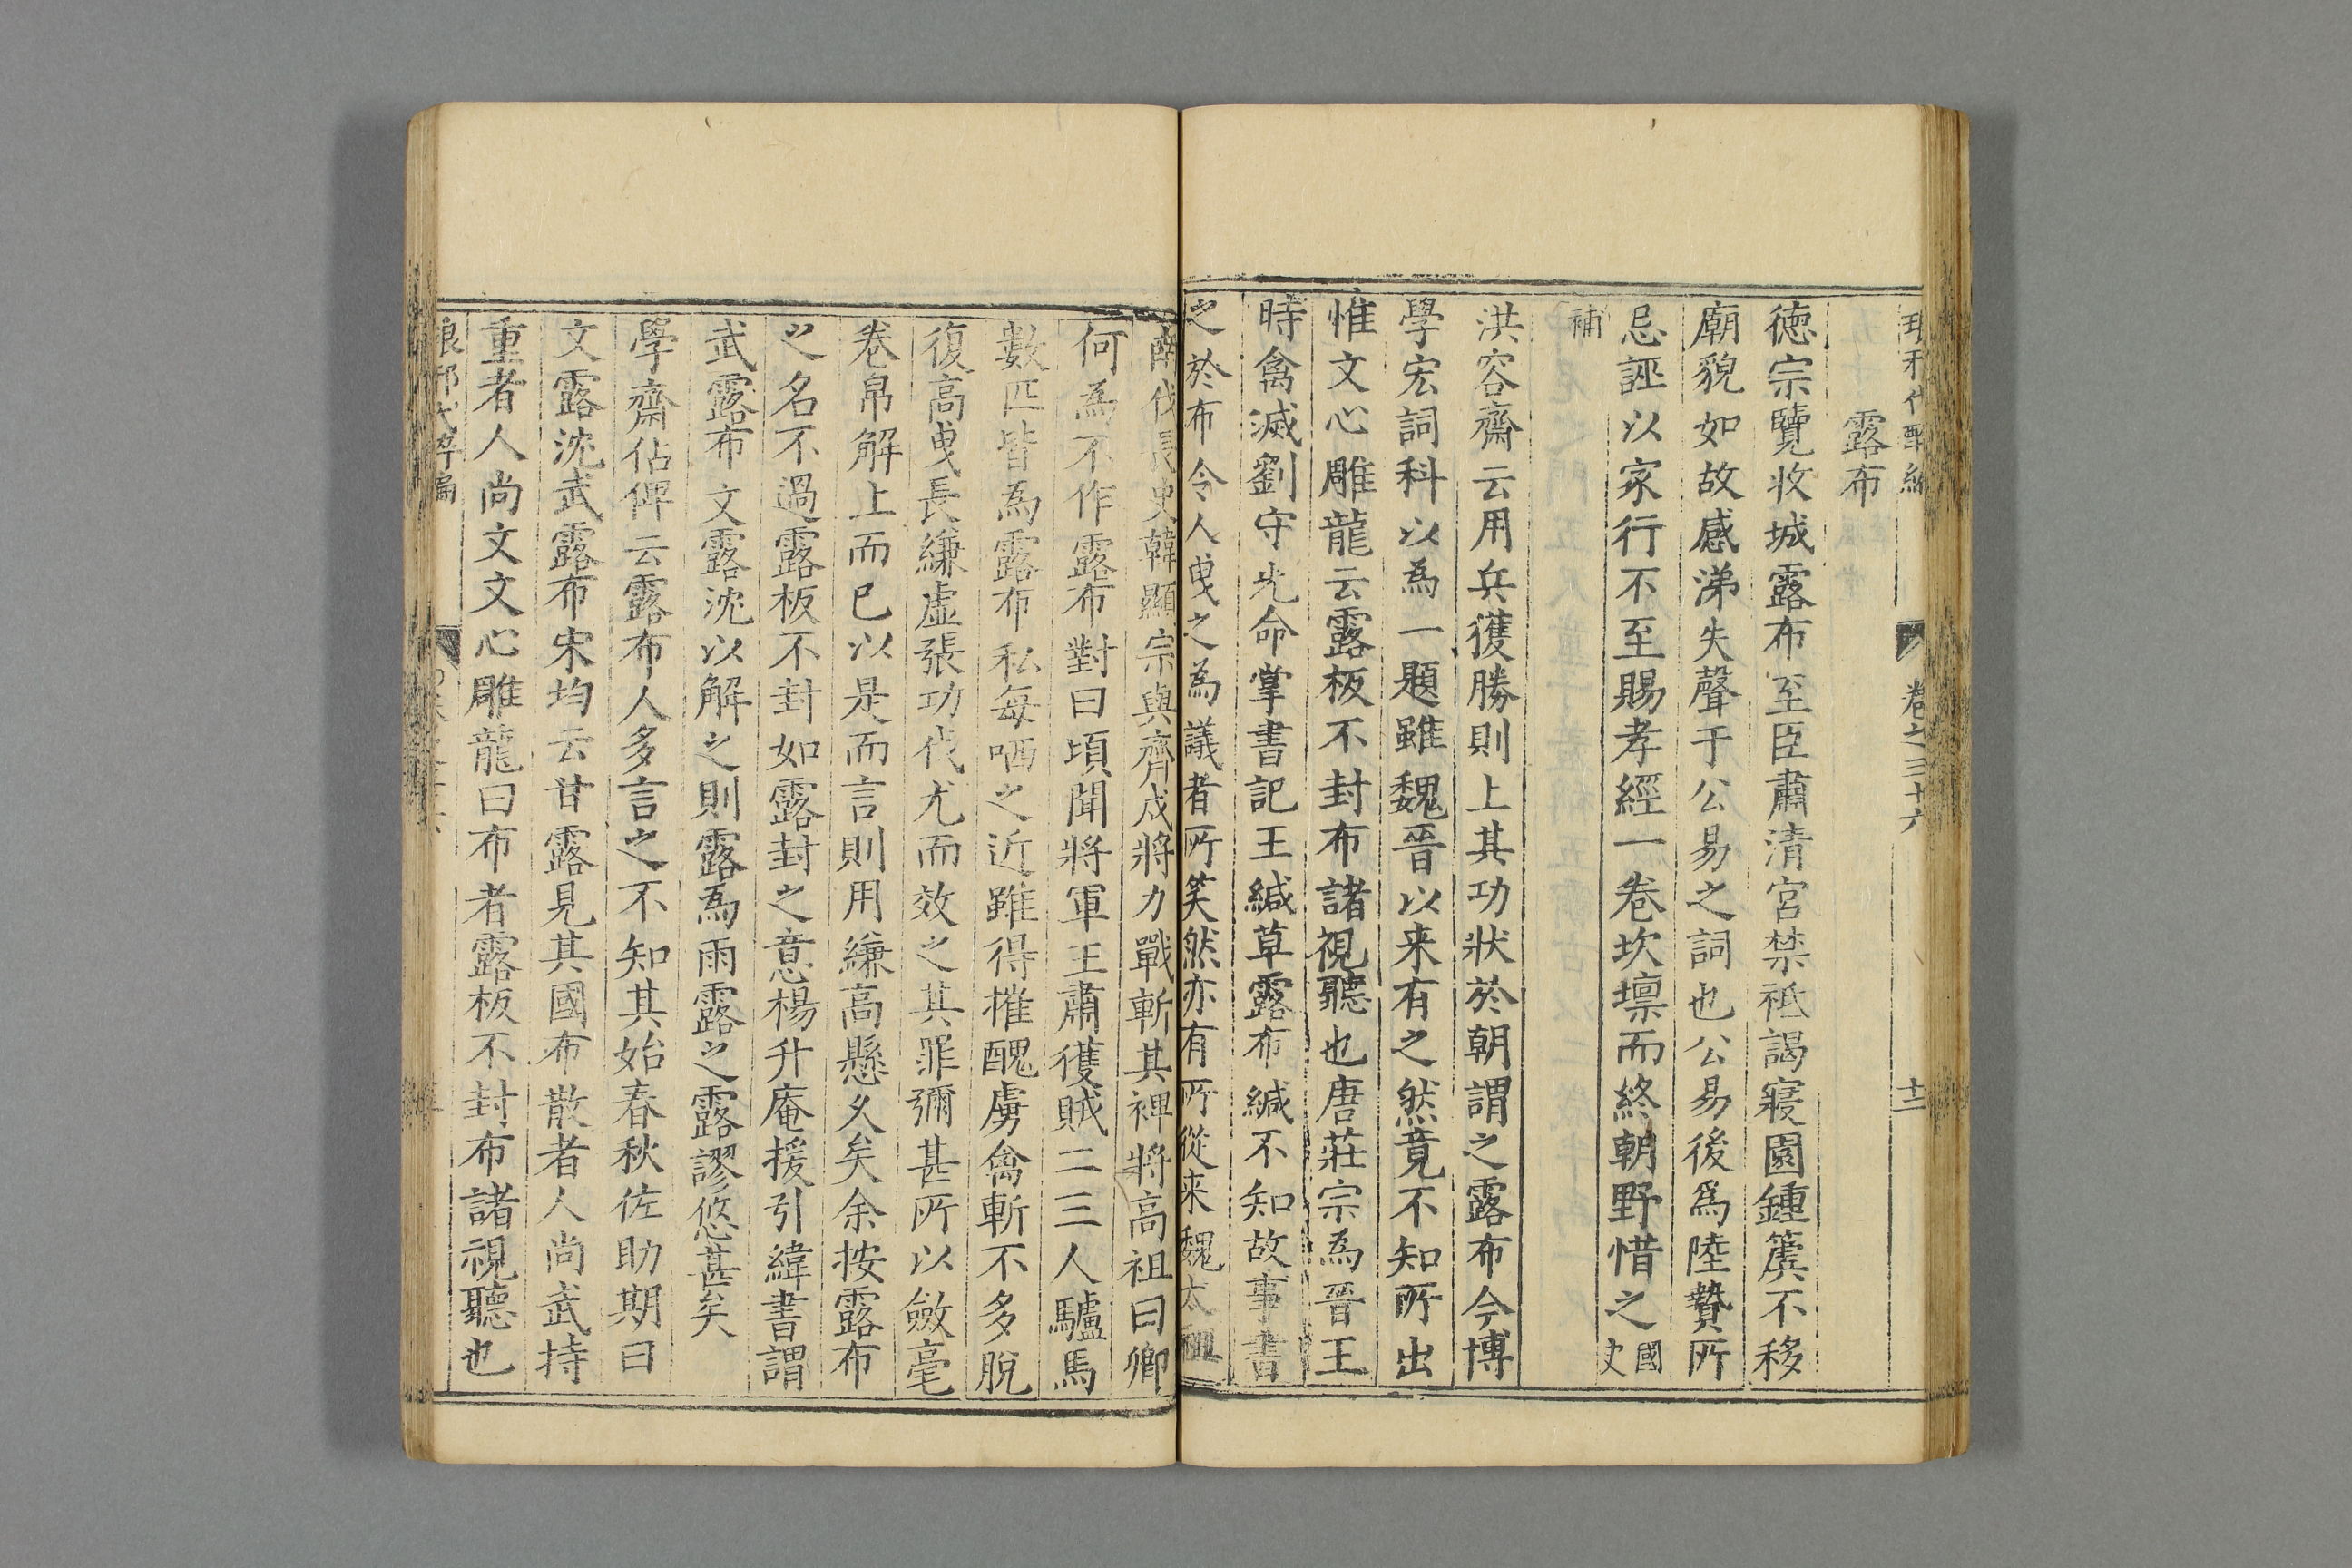 卷之三十六 十二
露布
德宗覽收城露布至臣肅清宮禁祗謁寢園鍾簴不移
廟貌如故感涕失聲于公易之詞也公易後爲陸贄所
忌誣以家行不至賜孝經一卷坎壈而終朝野惜之國史
補
洪容齋云用兵獲勝則上其功狀於朝謂之露布今博
學宏詞科以為一題雖魏晉以来有之然竟不知所出
惟文心雕龍云露板不封布諸視聽也唐莊宗為晉王
時禽滅劉守光命掌書記王緘草露布緘不知故事書
之於布令人曳之為議者所笑然亦有所從来魏太祖
南伐長史韓顯宗與齊戍將力戰斬其裨將高祖曰卿
何為不作露布對曰頃聞將軍王肅獲賊二三人驢馬
數匹皆為露布私每哂之近雖得摧醜虜禽斬不多脫
復高曳長縑虛張功伐尤而效之其罪彌甚所以斂毫
卷帛解上而已以是而言則用縑高懸久矣余按露布
之名不過露板不封如露封之意楊升庵援引緯書謂
武露布文露沈以解之則露為雨露之露謬悠甚矣
學齋佔俾云露布人多言之不知其始春秋佐助期曰
文露沈武露布宋均云甘露見其國布散者人尚武持
重者人尚文文心雕龍曰布者露板不封布諸視聽也